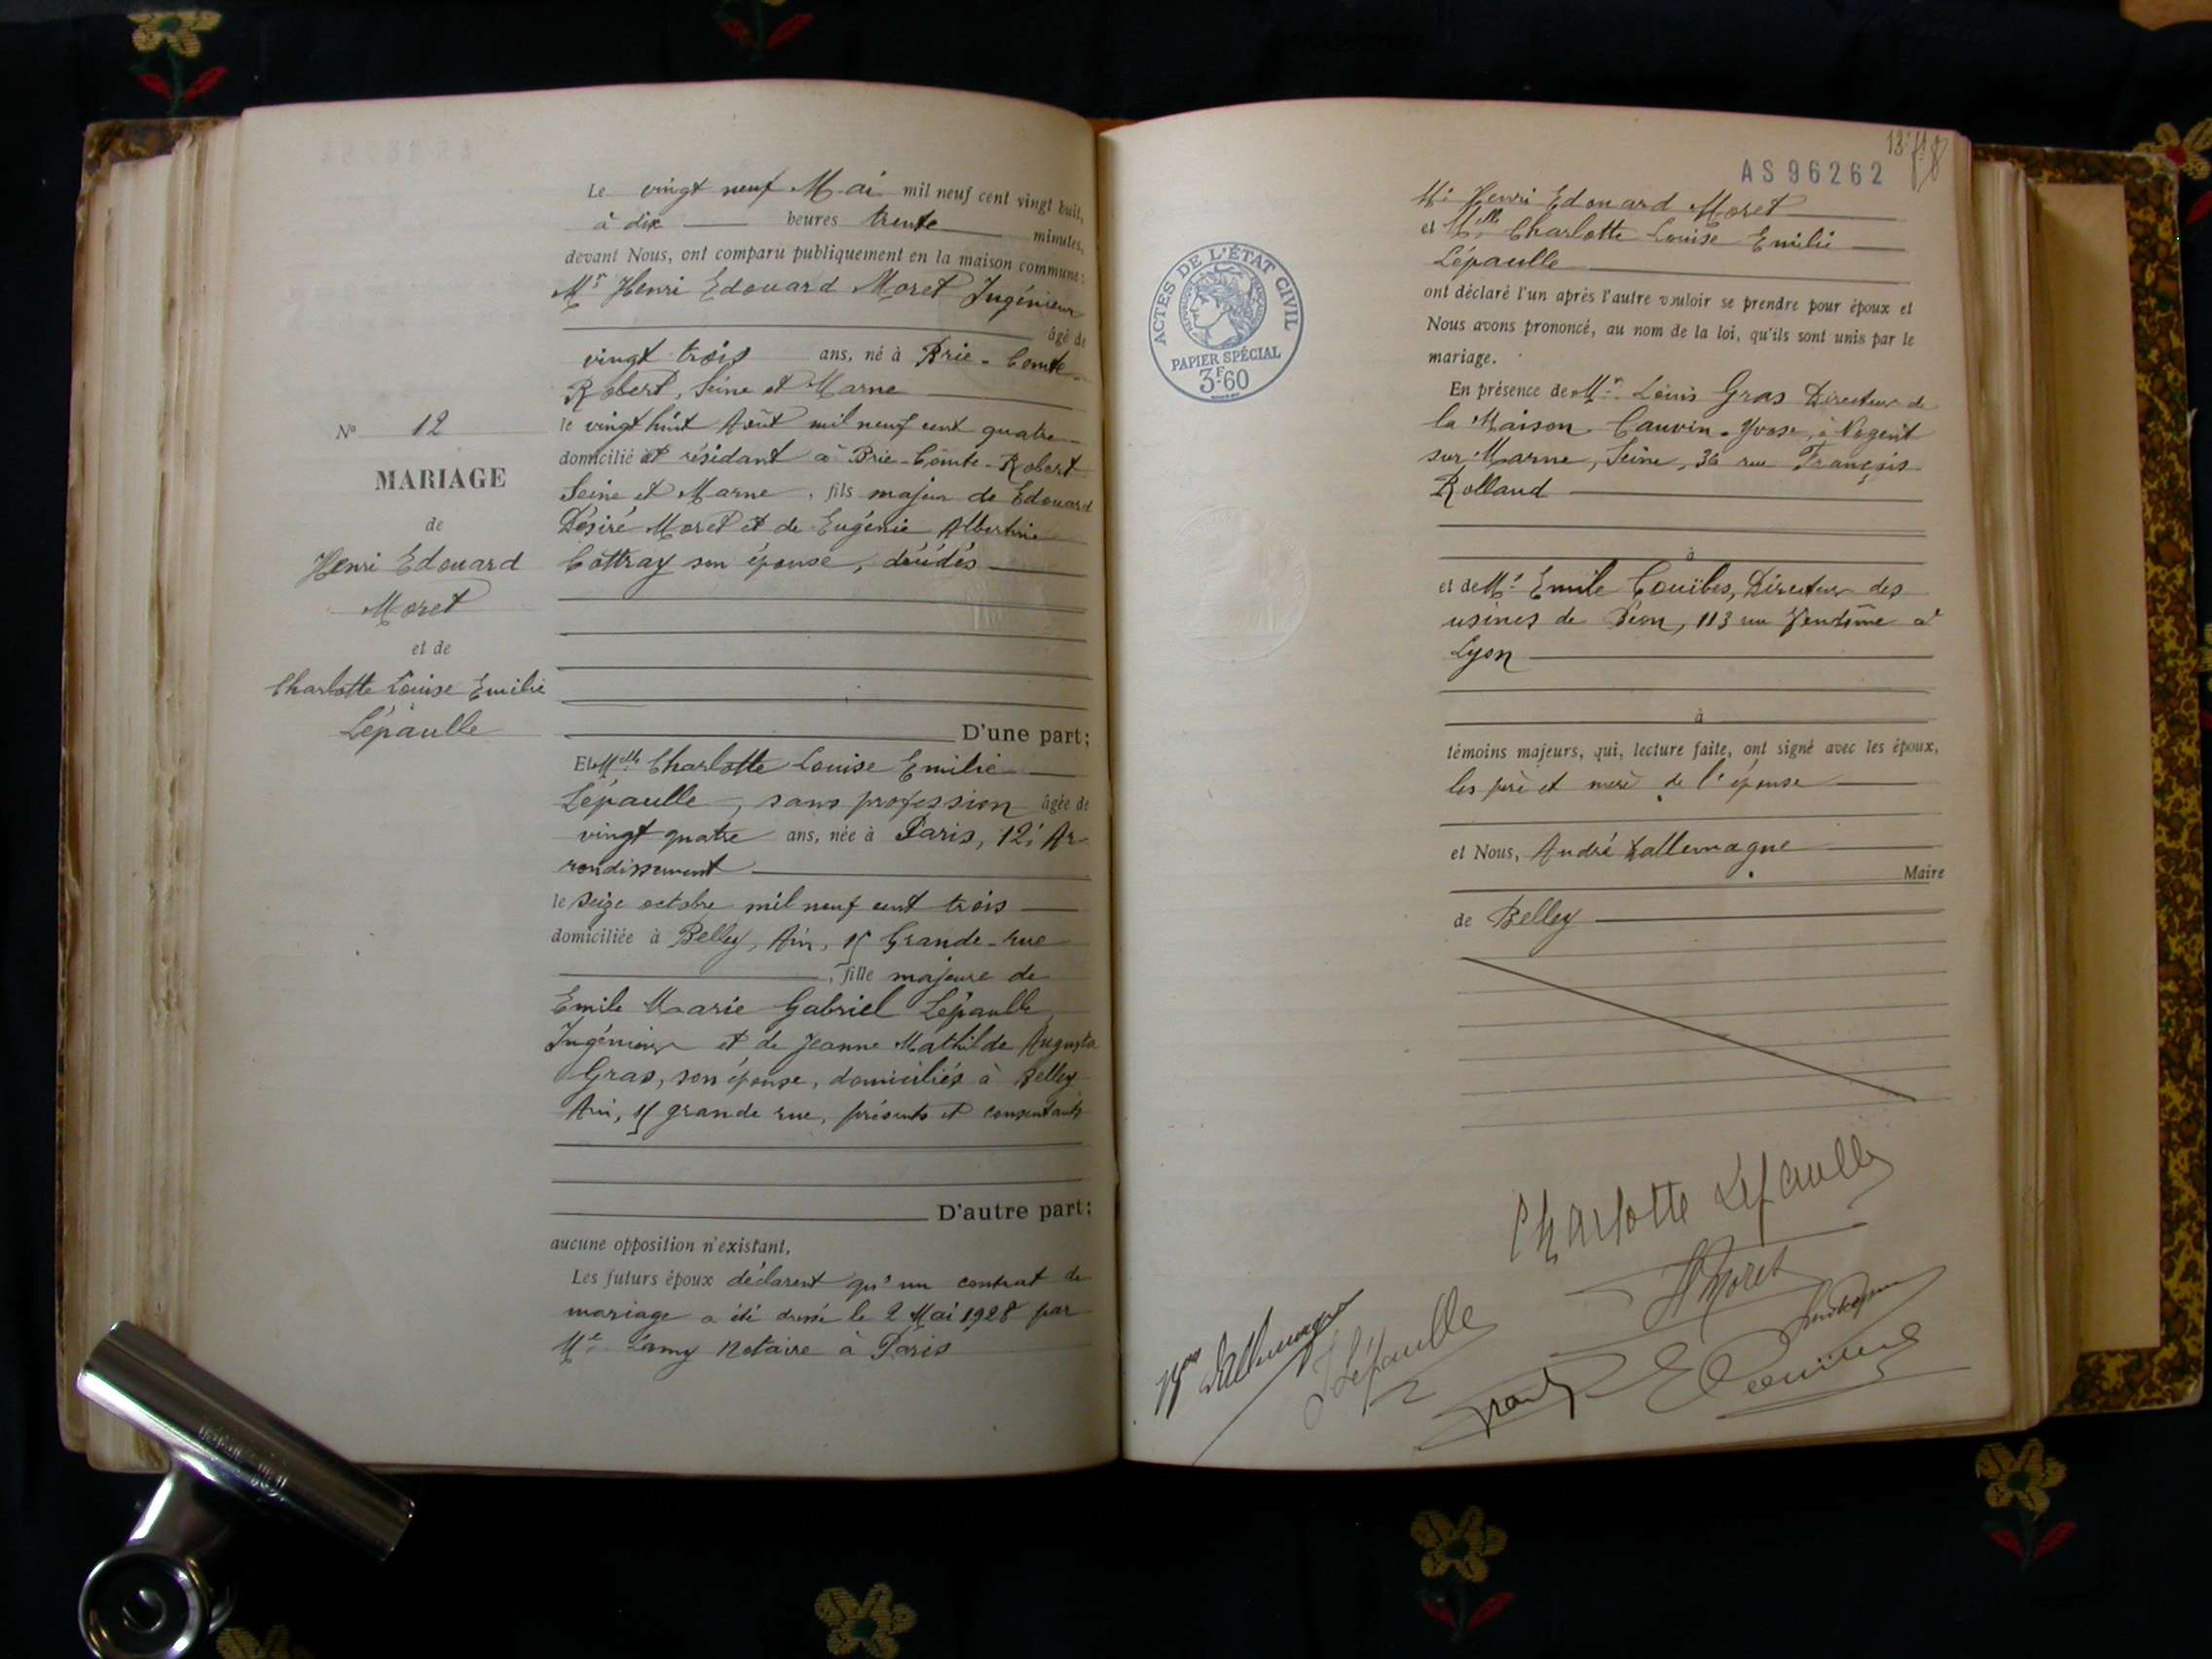 Le vingt neuf Mai mil neuf cent vingt huit,
à dix heures trente minutes,
devant Nous, ont comparu publiquement en la maison commune :
Mr Henri Edouard Moret Ingénieur
âgé de
vingt trois ans, né à Brie-Comte-
Robert, Seine et Marne
le vingt huit Août mil neuf cent quatre
domicilié et résidant à Brie-Comte-Robert
Seine et Marne, fils majeur de Edouard
Désiré Moret et de Eugénie Albertine
Cottray son épouse, décédés
D'une part;
Et Melle Charlotte Louise Emilie
Lépaulle, sans profession âgée de
vingt quatre ans, née à Paris, 12e Ar-
rondissement
le seize octobre mil neuf cent trois
domiciliée à Belley, Ain, 15 Grande-rue
, fille majeure de
Emile Marie Gabriel Lépaulle
Ingénieur et de Jeanne Mathilde Augusta
Gras, son épouse, domiciliés à Belley
Ain, 15 grande rue, présents et consentants
D'autre part;
aucune opposition n'existant,
Les futurs époux déclarent qu'un contrat de
mariage a été dressé le 2 Mai 1928 par
Me Lamy Notaire à Paris
No 12
MARIAGE
de
Henri Edouard
Moret
et de
Charlotte Louise Emilie
Lépaulle
AS 96262
ACTES DE L'ÉTAT CIVIL
PAPIER SPÉCIAL
3F60
Mr Henri Edouard Moret
et Melle Charlotte Louise Emilie
Lépaulle
ont déclaré l'un après l'autre vouloir se prendre pour époux et
Nous avons prononcé, au nom de la loi, qu'ils sont unis par le
mariage.
En présence de Mr Louis Gras Directeur de
la Maison Cauvin-Yvose, à Nogent
sur Marne, Seine, 36 rue François
Rolland
à
et de Mr Emile Couïbes, Directeur des
usines de 113 rue Vendôme à
Lyon
à
témoins majeurs, qui, lecture faite, ont signé avec les époux,
les père et mère de l'épouse
et Nous, André Dallemagne
Maire
de Belley
Charlotte Lépaulle
H Moret
Dallemagne
Lépaulle